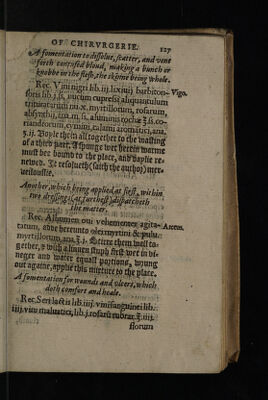 OF CHIRVRGERIE.
127
A fomentation to dissolue, scatter, and vent
forth contused bloud, making a bunch or
knobbe in the flesh, the skinne being whole.
Rec. Vini nigri lib.iiij. lixiuij barbiton-
Vigo.
soris lib. nucum cupressi aliquantulum
trituratarum nu. x. myrtillorum, rosarum,
absynthij, m. aluminis rochæ co-
riandrorum, cymini, calami aromatici, ana,
Boyle them all together to the wasting
of a third part. A sponge wet herein warme
must bee bound to the place, and daylie re-
newed. It resolueth (saith the author) mer-
ueilouslie.
Another, which being applied, at first, within
two dressings (at furthest) dispatcheth
the matter.
Rec. Albumen oui vehementer agita-
Arceus.
tatum, adde hereunto olei myrtini & pulu.
myrtillorum, ana Stirre them well to-
gether, & with a linnen stuph first wet in vi-
neger and water equall portions, wrung
out againe, applie this mixture to the place.
A fomentation for wounds and vlcers, which
doth comfort and heale.
Rec. Seri lactis lib.iiij. vini sanguinei lib.
iiij. lib.j. rosarū rubrar.
florum